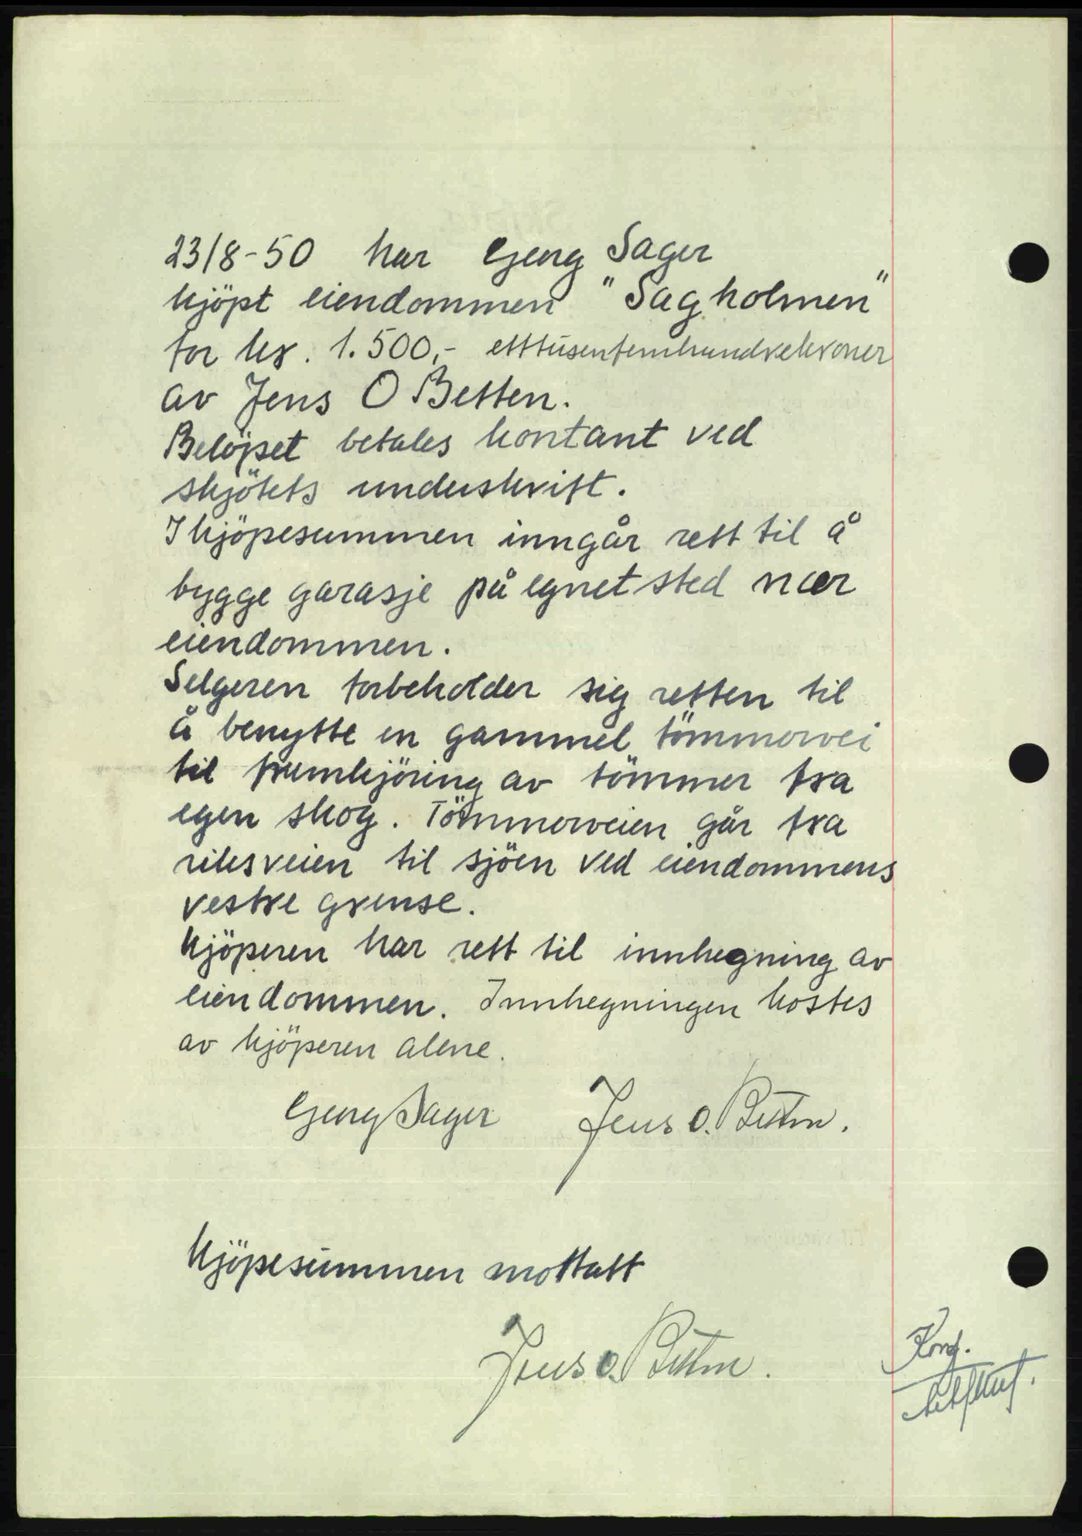 23/8-50 har Georg Sager
kjöpt eiendommen "Sagholmen"
for kr. 1.500,- ettusenfemhundrekroner
av Jens O Betten.
Belöpet betales kontant ved
skjötets underskrift.
I kjöpesummen inngår rett til å
bygge garasje på egnet sted nær
eiendommen.
Selgeren forbeholder sig retten til
å benytte en gammel tömmervei
til fremkjöring av tömmer fra
egen skog. Tömmerveien går fra
riksveien til sjöen ved eiendommens
vestre grense.
Kjöperen har rett til innhegning av
eiendommen. Innhegningen kostes
av kjöperen alene.
Georg Sager Jens O. Betten.
Kjöpesummen mottatt
Jens O. Betten.